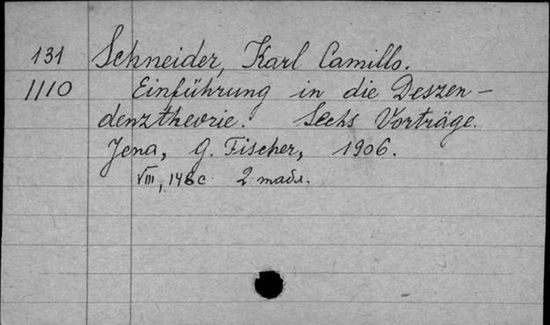 131 Schneider, Karl Camillo.
1110 Einführung in die Deszen-
denztheorie. Sechs Vorträge.
Jena, G. Fischer, 1906.
VIII, 146 с. 2 табл.